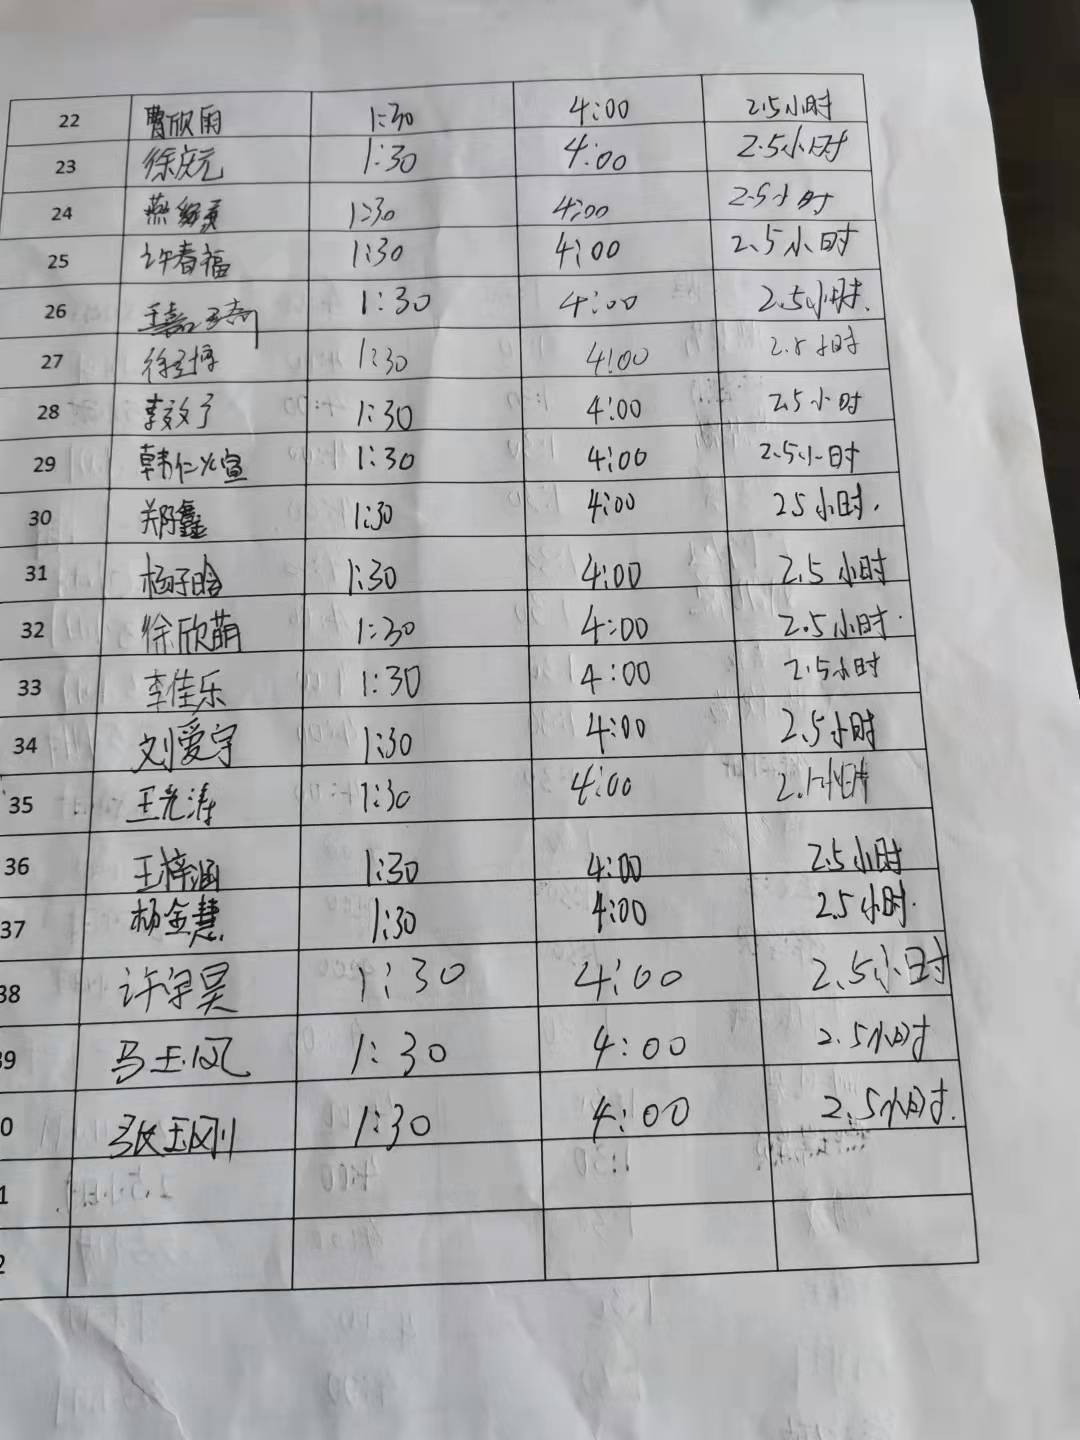 22 曹欣雨 1:30 4:00 2.5小时
23 徐庆元 1:30 4:00 2.5小时
24 1:30 4:00 2.5小时
25 许春福 1:30 4:00 2.5小时
26 1:30 4:00 2.5小时.
27 1:30 4:00 2.5小时
28 1:30 4:00 2.5小时
29 1:30 4:00 2.5小时
30 郑鑫 1:30 4:00 25小时.
31 杨子晗 1:30 4:00 2.5小时
32 徐欣萌 1:30 4:00 2.5小时.
33 李佳乐 1:30 4:00 2.5小时
34 刘爱宇 1:30 4:00 2.5小时
35 王光涛 1:30 4:00
36 王梓涵 1:30 4:00 2.5小时
37 杨金慧 1:30 4:00 2.5小时.
38 许宇昊 1:30 4:00 2.5小时
39 马玉凤 1:30 4:00 2.5小时
0 张玉刚 1:30 4:00 2.5小时.
1
2